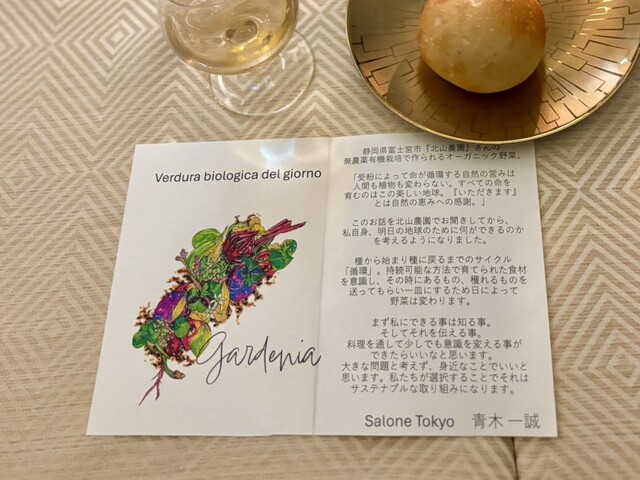 Verdura biologica del giorno
Gardenia
静岡県富士宮市『北山農園』さんの
無農薬有機栽培で作られるオーガニック野菜。
「受粉によって命が循環する自然の営みは
人間も植物も変わらない。すべての命を
育むのはこの美しい地球。『いただきます』
とは自然の恵みへの感謝。」
このお話を北山農園でお聞きしてから、
私自身、明日の地球のために何ができるのか
を考えるようになりました。
種から始まり種に戻るまでのサイクル
「循環」。持続可能な方法で育てられた食材
を意識し、その時にあるもの、穫れるものを
送ってもらい一皿にするため日によって
野菜は変わります。
まず私にできる事は知る事。
そしてそれを伝える事。
料理を通して少しでも意識を変える事が
できたらいいなと思います。
大きな問題と考えず、身近なことでいいと
思います。私たちが選択することでそれは
サステナブルな取り組みになります。
Salone Tokyo 青木 一誠